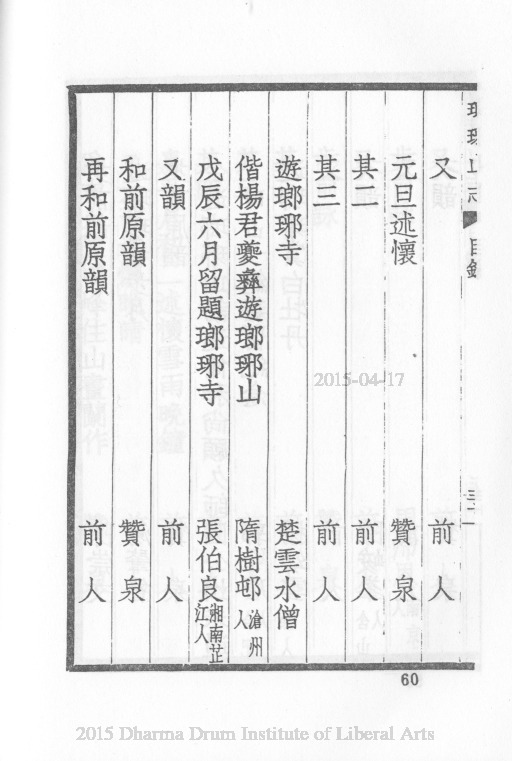 琅琊山志 目錄 三二
又 前人
元旦述懷 贊泉
其二 前人
其三 前人
遊瑯琊寺 楚雲水僧
偕楊君夔彝遊瑯琊山 隋樹邨 滄州人
戊辰六月留題瑯琊寺 張伯良 湘南芷江人
又韻 前人
和前原韻 贊泉
再和前原韻 前人
2015-04-17
60
2015 Dharma Drum Institute of Liberal Arts